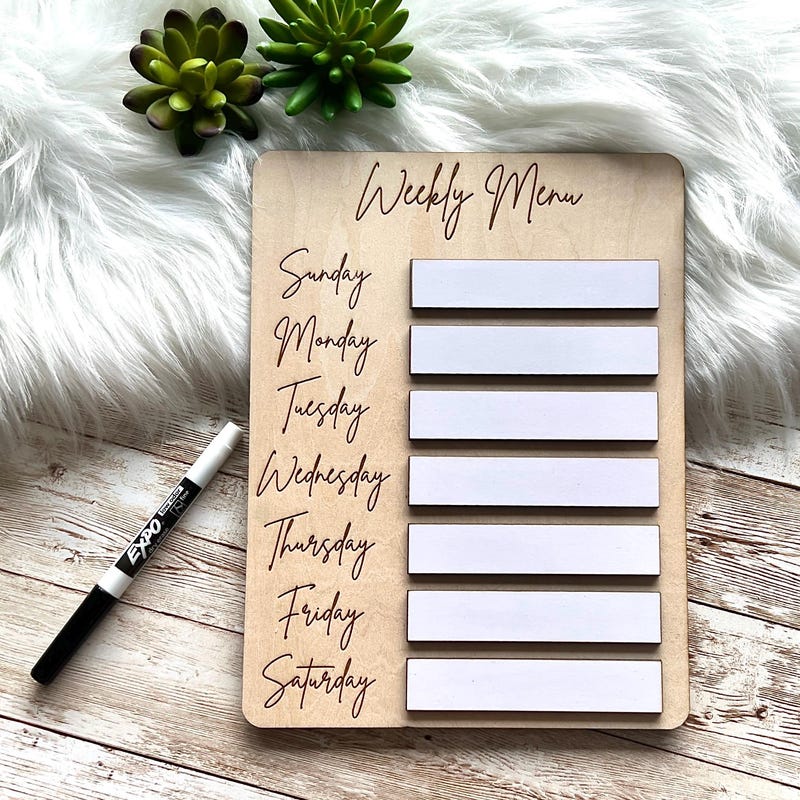 Weekly Menu
Sunday
Monday
Tuesday
Wednesday
Thursday
Friday
Saturday
EXPO
low odor
fine